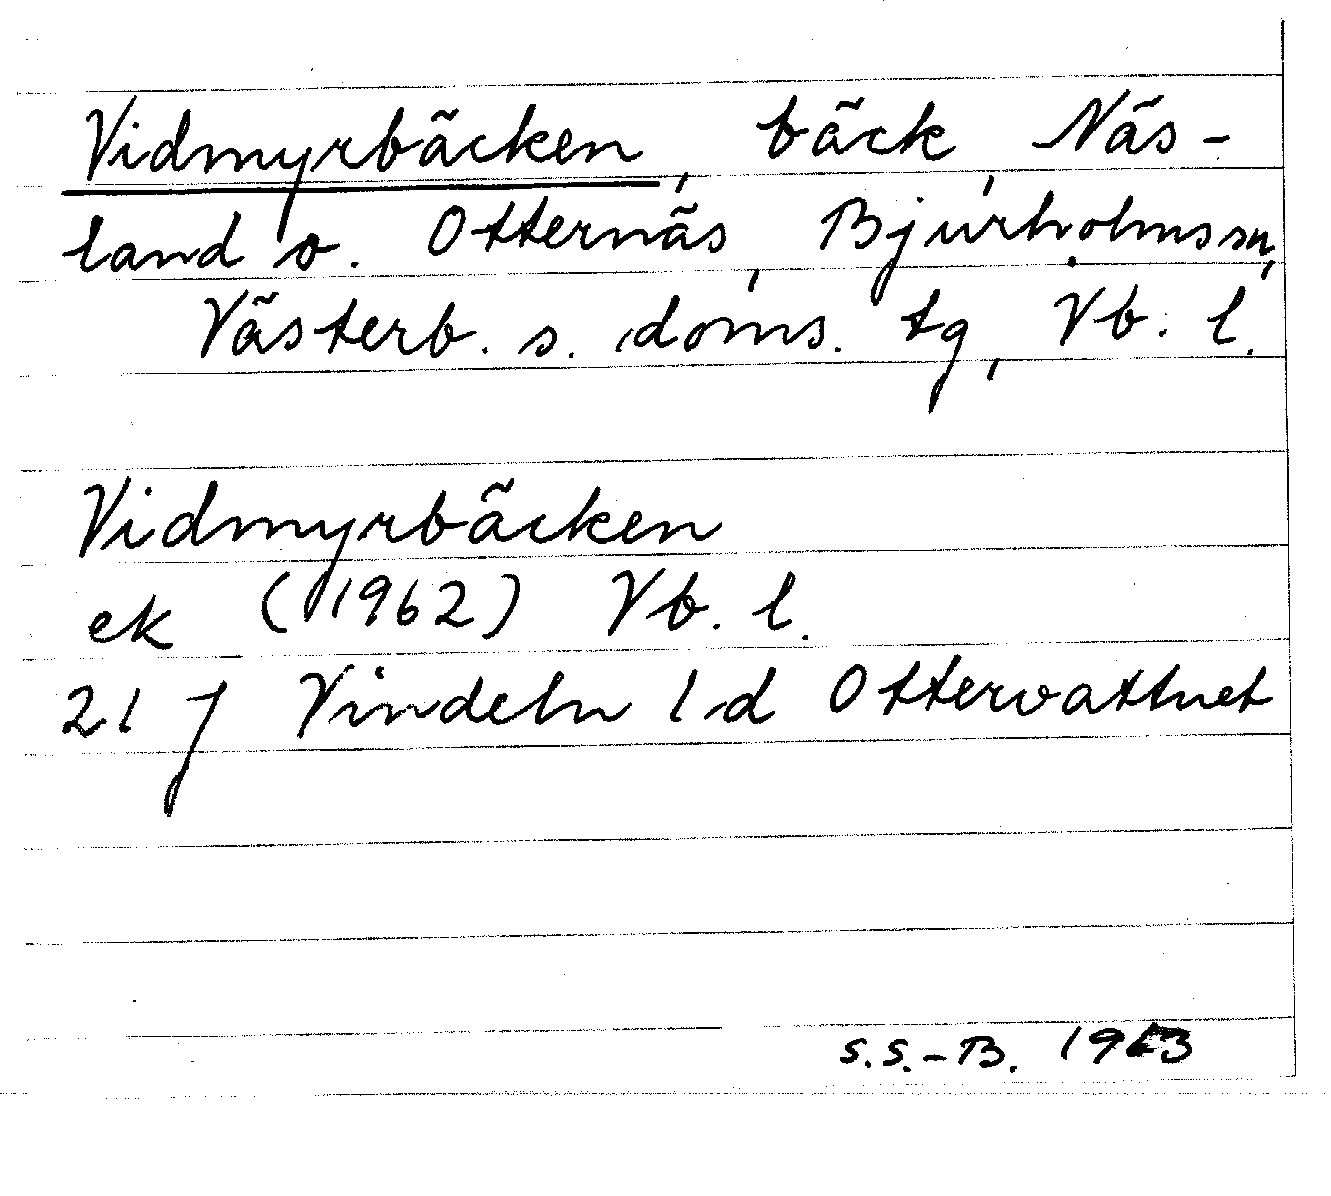 Vidmyrbäcken, bäck, Näs-
land o. Otternäs, Bjurholms sn,
Västerb. s. doms. tg, Vb. l.
Vidmyrbäcken
ek (1962) Vb. l.
21 J Vindeln 1 d Ottervattnet
S.S.-B. 1963